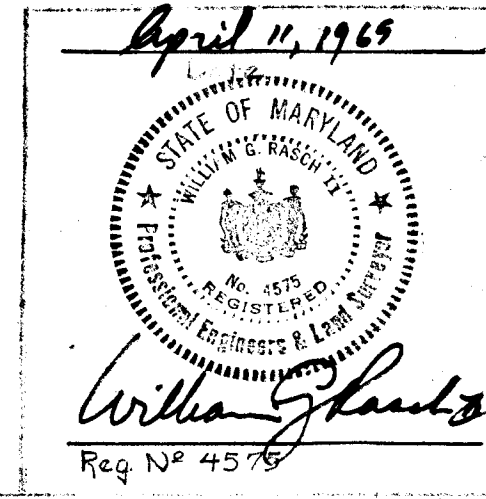 April 11, 1969
Date
STATE OF MARYLAND
WILLIAM G. RASCH II
No. 4575
REGISTERED
Professional Engineers & Land Surveyor
William G Rasch II
Reg. Nº 4575